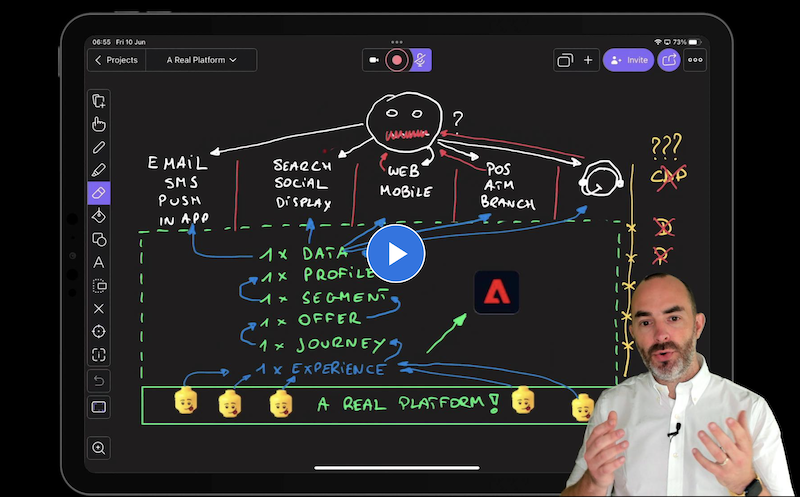 06:55 Fri 10 Jun
73%
Projects
A Real Platform
Invite
?
EMAIL
SMS
PUSH
IN APP
SEARCH
SOCIAL
DISPLAY
WEB
MOBILE
POS
ATM
BRANCH
???
CDP
1x DATA
1x PROFILE
1x SEGMENT
1x OFFER
1x JOURNEY
1x EXPERIENCE
A REAL PLATFORM!